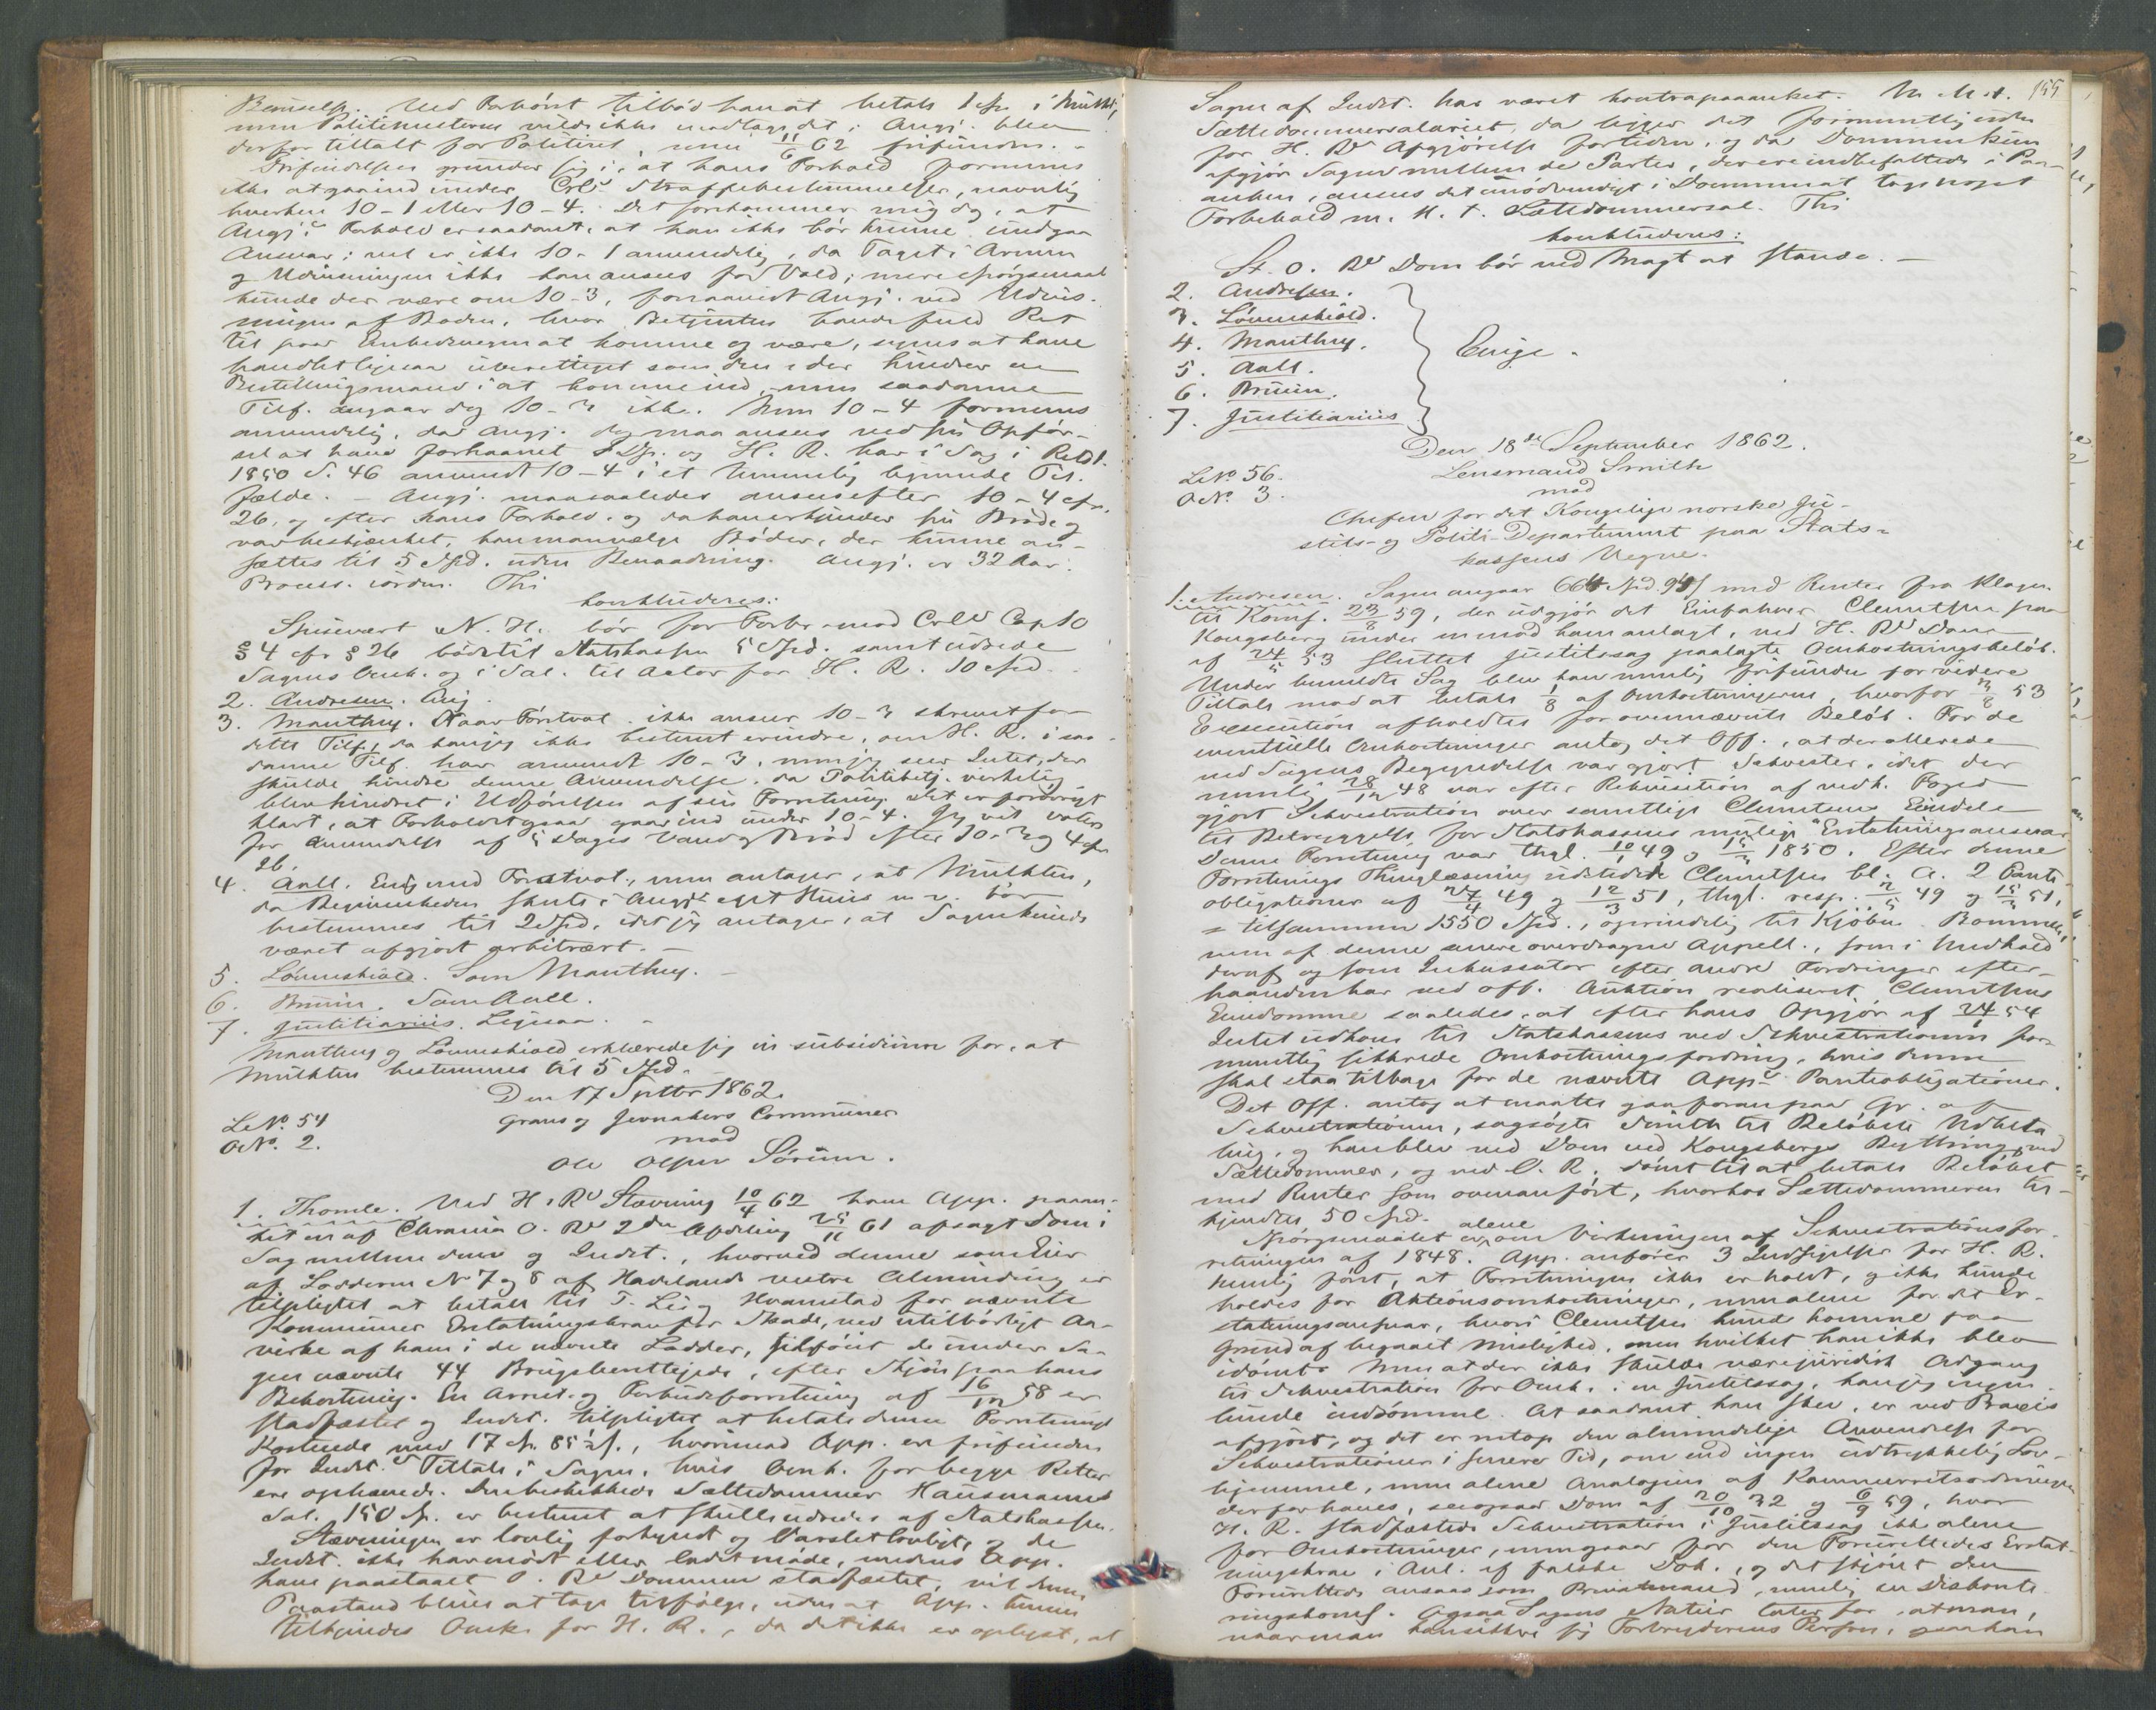 Beruselse. Ved Forhör tilböd han at betale 1 Spd. i Mulkt,
men Politimesteren vilde ikke modtage det; Angj. blev
derfor tiltalt for Politiret, men 11/6 62 frifunden. -
Frifindelsen grunder sig i, at hans Forhold formenes
ikke at gaa ind under Crls Straffebestemmelser, navnlig
hverken 10-1 eller 10-4. Det forekommer mig dog, at
Angj.s Forhold er saadant, at han ikke bör kunne undgaa
Ansvar; vel er ikke 10-1 anvendelig, da Taget i Armen
og Udvisningen ikke kan ansees for Vold; mere Spörgsmaal
kunde der være om 10-3, forsaavidt Angj. ved Udvis-
ningen af Boden, hvor Betjenten havde fuld Ret
til paa Embedsvegne at komme og være, synes at have
handlet ligesaa uberettiget som den, der hindrer en
Bestillingsmand i at komme ind, men saadanne
Tilf. angaar dog 10-3 ikke. Men 10-4 formenes
anvendelig, da Angj. dog maa ansees ved sin Opför-
sel at have forhaanet Bestj. og H. R. har i Sag i Rettst.
1850 S. 46 anvendt 10-4 i et temmelig lignende Til-
fælde. - Angj. maa saaledes ansees efter 10-4 cfr.
26, og efter hans Forhold, og da han erkjender sin Bröde og
var beskjænket, kan man vælge Böder, der kunne an-
sættes til 5 Spd. uden Benaadning. Angj. er 32 Aar.
Process. iorden. Thi
konkluderes:
Spisevært N. H. bör for Forbr. mod Crls Cap 10
§ 4 cfr § 26 böde til Statskassen 5 Spd. samt udrede
Sagens Omk. og i Sal. til Actor for H. R. 10 Spd.
2. Andresen. Enig.
3. Manthey. Naar Förstvot. ikke anser 10-3 skrevet for
dette Tilf., da kan jeg ikke bestemt erindre, om H. R. i saa-
danne Tilf. har anvendt 10-3, men jeg seer Intet, der
skulde hindre denne Anvendelse, da Politibetj. virkelig
blev hindret i Udförelsen af sin Forretning. Det er forövrigt
klart, at Forholdet gaar ind under 10-4. Jeg vil votere
for Anvendelse af 5 Dages Vand og Bröd efter 10-3 og 4 cfr
26.
4. Aall. Enig med Förstvot., men antager, at Mulkten,
da Begivenheden skete i Angj.s eget Huus m. v. bör
bestemmes til 2 Spd., idet jeg antager, at Sagen kunde
været afgjort arbitrært. -
5. Lövenskiold. Som Manthey. -
6. Bruun. Som Aall.
7. Justitiarius. Ligesaa. -
Manthey og Lövenskiold erklærede sig in subsidium for, at
Mulkten bestemmes til 5 Spd.
Den 17 Septbr 1862.
L. No. 54
O. No. 2.
Grans og Jevnakers Communer
mod
Ole Olsen Sörum.
1. Thomle. Ved H. Rs Stævning 10/4 62 have App. paaan-
ket en af Chrania O. Rs 2den Afdeling 25/11 61 afsagt Dom i
Sag mellem dem og Indst., hvorved denne som Eier
af Lodderne No 7 og 8 af Hadelands vestre Alminding er
tilpligtet at betale til T. Lie og Hvamstad for nævnte
Kommuner Erstatningskrav for Skade, ved utilbörligt Aa-
virke af ham i de nævnte Lodder, tilföiet de under Sa-
gen nævnte 44 Brugsberettigede, efter Skjön paa hans
Bekostning. En Arrest- og Forbudsforretning af 16/12 58 er
stadfæstet og Indst. tilpligtet at betale denne Forretnings
Kostende med 17 Sp. 85½ s., hvorimod App. ere frifundne
for Indst.s Tiltale i Sagen, hvis Omk. for begge Retter
ere ophævede. Den beskikkede Sættedommer Hausmanns
Sal. 150 Sp. er bestemt at skulle udredes af Statskassen.
Stævningen er lovlig forkyndt og Varslet lovligt, og da
Indst. ikke har mödt eller ladet möde, medens App.
have paastaaet O. Rs Dommen stadfæstet, vil denne
Paastand blive at tage tilfölge, uden at App. kunne
tilkjendes Omk. for H. R., da det ikke er oplyst, at
155
Sagen af Indst. har været kontrapaaanket. M. H. t.
Sættedommersalariet, da ligger det formentlig under
for H. Rs Afgjörelse fortiden, og da Dommen kun
afgjör Sagen mellem de Parter, der ere indbefattede i Paa-
anken, ansees det unödvendigt i Dommen at tage noget
Forbehold m. H. t. Sættedommersal. Thi
konkluderes:
St. O. Rs Dom bör ved Magt at stande. -
2. Andresen.
3. Lövenskiold.
4. Manthey.
5. Aall.
6. Bruun.
7. Justitiarius
Enige.
Den 18de September 1862.
L. No 56.
O. No. 3.
Lensmand Smith
mod
Chefen for det Kongelige norske Ju-
stits- og Politi-Departement paa Stats-
kassens Vegne.
1. Andresen. Sagen angaar 664 Spd. 94 s med Renter fra Klagen
til Komf. 23/8 59, der udgjör det Einfahrer Clemetsen paa
Kongsberg under en mod ham anlagt, ved H. Rs Dom
af 24/5 53 sluttet Justitssag paalagte Omkostningsbelöb.
Under bemeldte Sag blev han nemlig frifunden for videre
Tiltale mod at betale 1/8 af Omkostningerne, hvorfor 3/8 53
Execution afholdtes for ovennævnte Belöb. For de
eventuelle Omkostninger antog det Off., at der allerede
ved Sagens Begyndelse var gjort Sekvester, idet der
nemlig 28/12 48 var efter Rekvisition af vedk. Foged
gjort Sekvestration over samtlige Clemetsens Eiendele
til Betryggelse for Statskassens mulige "Erstatningsansvar".
Denne Forretning var thgl. 10/1 49 og 15/3 1850. Efter denne
Forretnings Thinglæsning udstedte Clemetsen bl. A. 2 Pante-
obligationer af 24/4 49 og 12/3 51, thgl. resp. 2/5 49 og 15/3 51,
= tilsammen 1550 Spd., oprindelig til Kjöbm. Bommen,
men af denne senere overdragne Appell., som i Medhold
deraf og som Inkassator efter andre Fordringer efter-
haanden har ved off. Auktion realiseret Clemetsens
Eiendomme saaledes, at efter hans Opgjör af 24/6 54
Intet udkom til Statskassens ved Sekvestrationen for-
mentlig sikkrede Omkostningsfordring, hvis denne
skal staa tilbage for de nævnte App.s Panteobligationer.
Det Off. antog at maatte gaa foran paa Gr. af
Sekvestrationen, sagsögte Smith til Belöbets Udbeta-
ling, og han blev ved Dom ved Kongsbergs Bything, ved
Sættedommer, og ved O. R. dömt til at betale Belöbet
med Renter som ovenanfört, hvorhos Sættedommeren til-
kjendtes 50 Spd.
Spörgsmaalet er alene om Virkningen af Sekvestrationsfor-
retningen af 1848. App. anförer 3 Indsigelser for H. R.
Nemlig först, at Forretningen ikke er holdt, og ikke kunde
holdes for Aktionsomkostninger, men alene for det Er-
statningsansvar, hvori Clemetsen kunde komme paa
Grund af begaaet Mislighed, men hvilket han ikke blev
idömt. Men at der ikke skulde være juridisk Adgang
til Sekvestration for Omk. i en Justitssag, kan jeg ingen-
lunde indrömme. At saadant kan skee, er ved Praxis
afgjort, og det er netop den almindelige Anvendelse for
Sekvestrationen i senere Tid, om end ingen udtrykkelig Lov-
hjemmel, men alene Analogien af Kammerretsordningen
derfor haves, see ogsaa Dom af 20/10 32 og 6/9 59, hvor
H. R. stadfæstede Sekvestration i Justitssag ikke alene
for Omkostninger, men ogsaa for den Forurettedes Erstat-
ningskrav i Anl. af falske Dok., og det skjönt den
Forurettede ansaaes som Privatmand, nemlig en Diskonte-
ringskomf. Ogsaa Sagens Natur taler for, at man,
naar man kan sikkre sig Forbryderens Person, ogsaa kan